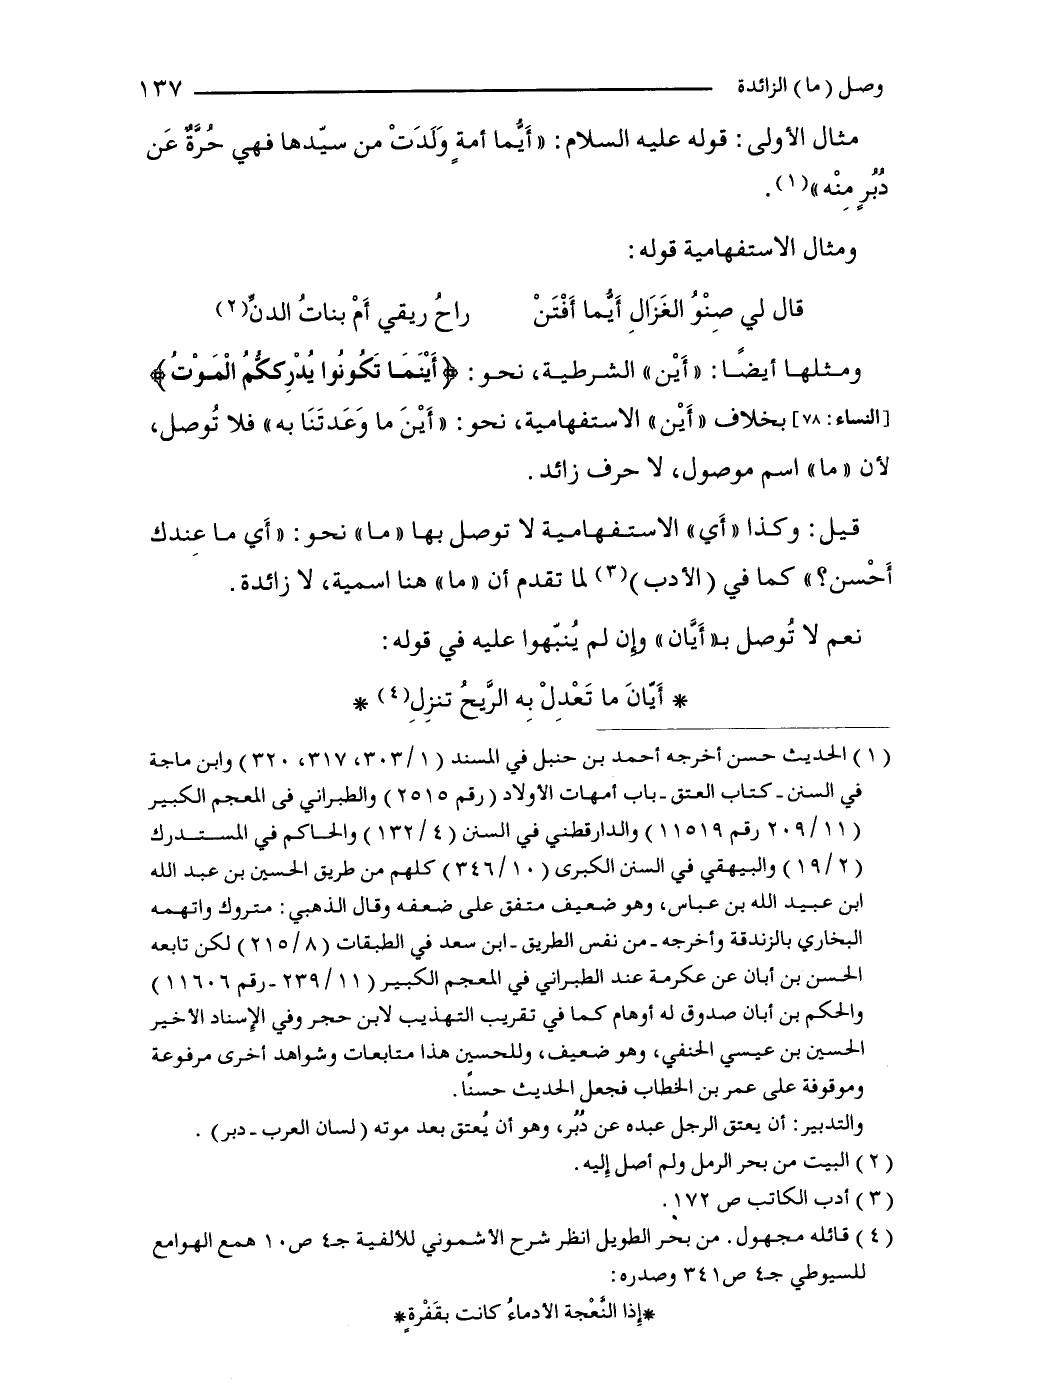 وصل (ما) الزائدة ١٣٧
مثال الأولى: قوله عليه السلام: «أَيُّما أمةٍ وَلَدَتْ من سيّدها فهي حُرَّةٌ عَن
دُبُرٍ مِنْه»(١).
ومثال الاستفهامية قوله:
قال لي صِنْوُ الغَزَالِ أَيُّما أَفْتَنْ راحُ ريقي أمْ بناتُ الدنِّ(٢)
ومثلها أيضًا: «أَيْن» الشرطية، نحو: ﴿أَيْنَمَا تَكُونُوا يُدْرِككُّمُ الْمَوْتُ﴾
[النساء: ٧٨] بخلاف «أَيْن» الاستفهامية، نحو: «أَيْنَ ما وَعَدتَنَا به» فلا تُوصل،
لأن «ما» اسم موصول، لا حرف زائد.
قيل: وكذا «أَي» الاستفهامية لا توصل بها «ما» نحو: «أَي ما عِندك
أَحْسن؟» كما في (الأدب)(٣) لما تقدم أن «ما» هنا اسمية، لا زائدة.
نعم لا تُوصل بـ«أَيَّان» وإن لم يُنبّهوا عليه في قوله:
* أَيّانَ ما تَعْدِلْ به الرَّيحُ تنزِلِ(٤) *
(١) الحديث حسن أخرجه أحمد بن حنبل في المسند (٣٠٣/١، ٣١٧، ٣٢٠) وابن ماجة
في السنن ـ كتاب العتق ـ باب أمهات الأولاد (رقم ٢٥١٥) والطبراني فى المعجم الكبير
(٢٠٩/١١ رقم ١١٥١٩) والدارقطني في السنن (١٣٢/٤) والحاكم في المستدرك
(١٩/٢) والبيهقي في السنن الكبرى (٣٤٦/١٠) كلهم من طريق الحسين بن عبد الله
ابن عبيد الله بن عباس، وهو ضعيف متفق على ضعفه وقال الذهبي: متروك واتهمه
البخاري بالزندقة وأخرجه ـ من نفس الطريق ـ ابن سعد في الطبقات (٢١٥/٨) لكن تابعه
الحسن بن أبان عن عكرمة عند الطبراني في المعجم الكبير (٢٣٩/١١ ـ رقم ١١٦٠٦)
والحكم بن أبان صدوق له أوهام كما في تقريب التهذيب لابن حجر وفي الإسناد الأخير
الحسين بن عيسي الحنفي، وهو ضعيف، وللحسين هذا متابعات وشواهد أخرى مرفوعة
وموقوفة على عمر بن الخطاب فجعل الحديث حسنًا.
والتدبير: أن يعتق الرجل عبده عن دُبُر، وهو أن يُعتق بعد موته (لسان العرب ـ دبر).
(٢) البيت من بحر الرمل ولم أصل إليه.
(٣) أدب الكاتب ص ١٧٢.
(٤) قائله مجهول. من بحر الطويل انظر شرح الأشموني للألفية جـ٤ ص١٠ همع الهوامع
للسيوطي جـ٤ ص٣٤١ وصدره:
*إذا النَّعْجة الأدماءُ كانت بقَفْرةٍ*